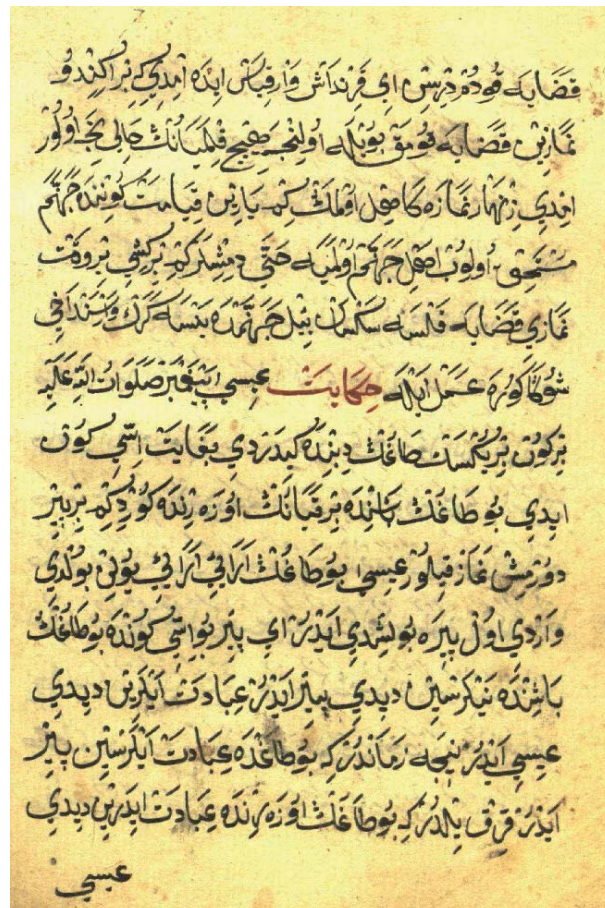 قضايه قودم درسن اي قرنداش وار قياس ايده امدي كه بر اكندو
نمازين قضايه قومق بويله اولنجه هيچ قلميانك حالي نجه اولور
امدي زنهار نمازه كاهل اولمك كم يارين قيامت كوننده جهنم
مستحق اولوب اهل جهنم اولميه حتي دمشلر كم بر كشي بر وقت
نمازي قضايه قلسه سكسان ييل جهنمده ينسه كرك وسندخي
شوكا كوره عمل ايله حكايت عيسي پيغمبر صلوات الله عليه
بر كون بر يوكسك طاغك ديبنده كيدردي بغايت اسي كون
ايدي بو طاغك باشنده بر قيانك اوزه رنده كوردكم بر پير
دورمش نماز قيلور عيسي بو طاغك ارايي ارايي يولني بولدي
واردي اول پيره بولشدي ايدر اي پير بو اسي كونده بو طاغك
باشنده نيلرسين ديدي پير ايدر عبادت ايلرين ديدي
عيسي ايدر نيجه زماندر كه بو طاغده عبادت ايلرسين پير
ايدر قرق ييلدر كه بو طاغك اوزه رنده عبادت ايدرين ديدي
عيسي